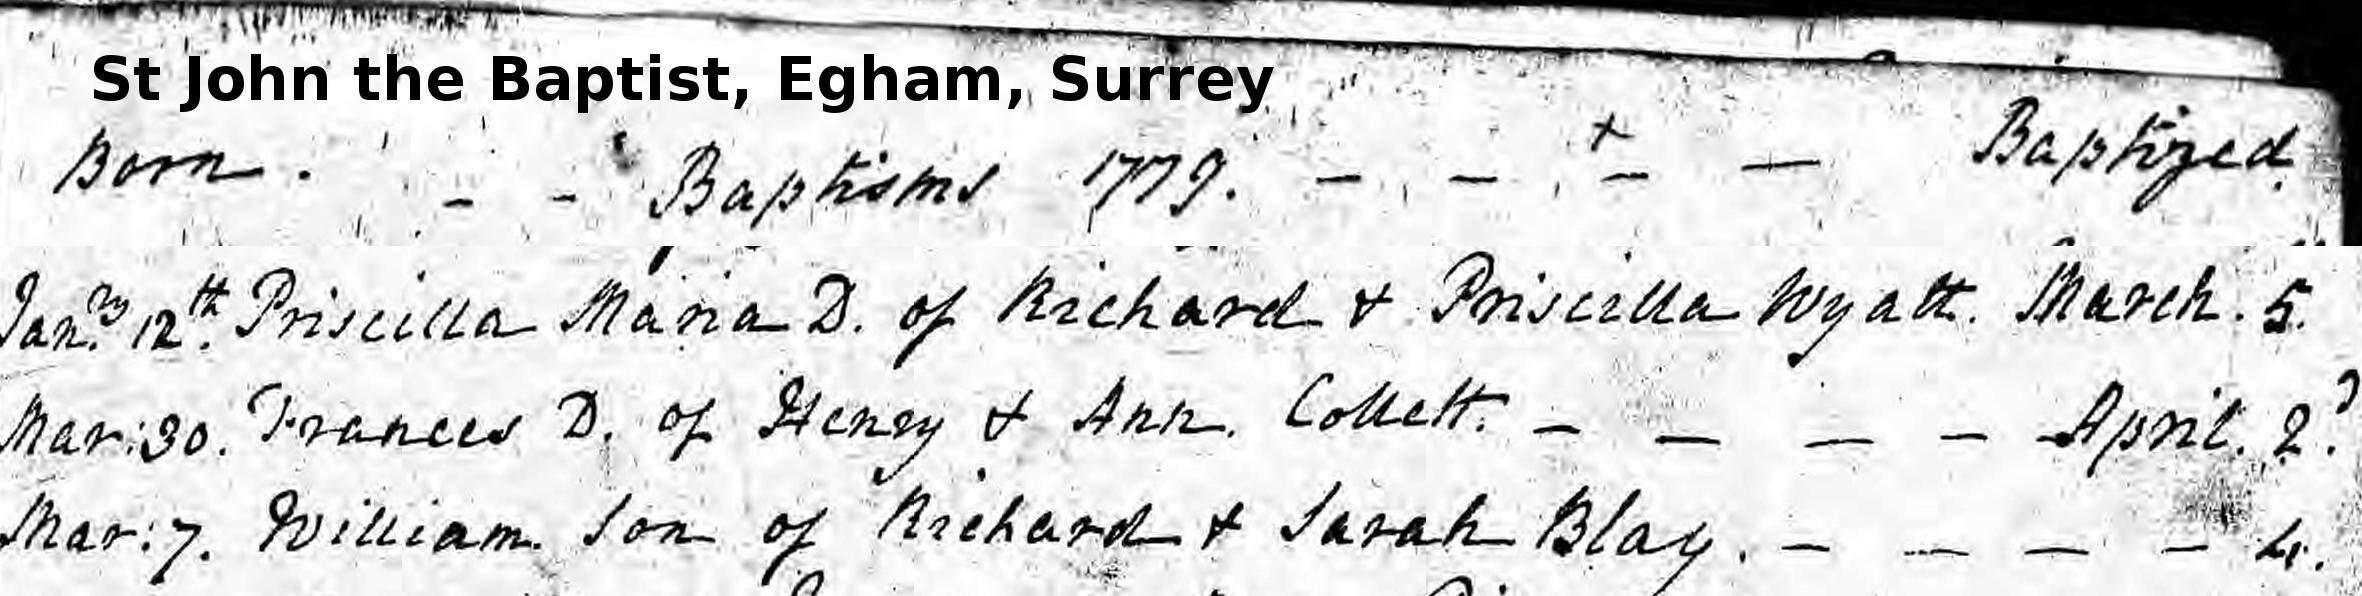 St John the Baptist, Egham, Surrey
Born. - - Baptisms 1779. - - - - Baptized
Janry 12th. Priscilla Maria D. of Richard & Priscilla Wyatt. March. 5.
Mar: 30. Frances D. of Henry & Ann. Collett. - - - - April. 2d.
Mar: 7. William Son of Richard & Sarah Blay. - - - - 4.